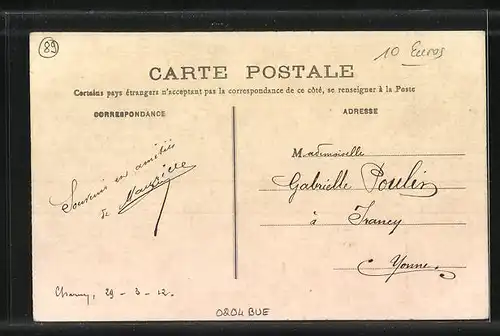 89
10 Euros
CARTE POSTALE
Certains pays étrangers n'acceptant pas la correspondance de ce côté, se renseigner à la Poste
CORRESPONDANCE
ADRESSE
Souvenir et amitiés
de Maurice
Mademoiselle
Gabrielle Poulin
à Irancy
Yonne
Charny, 29 - 3 - 12.
0204 BUE